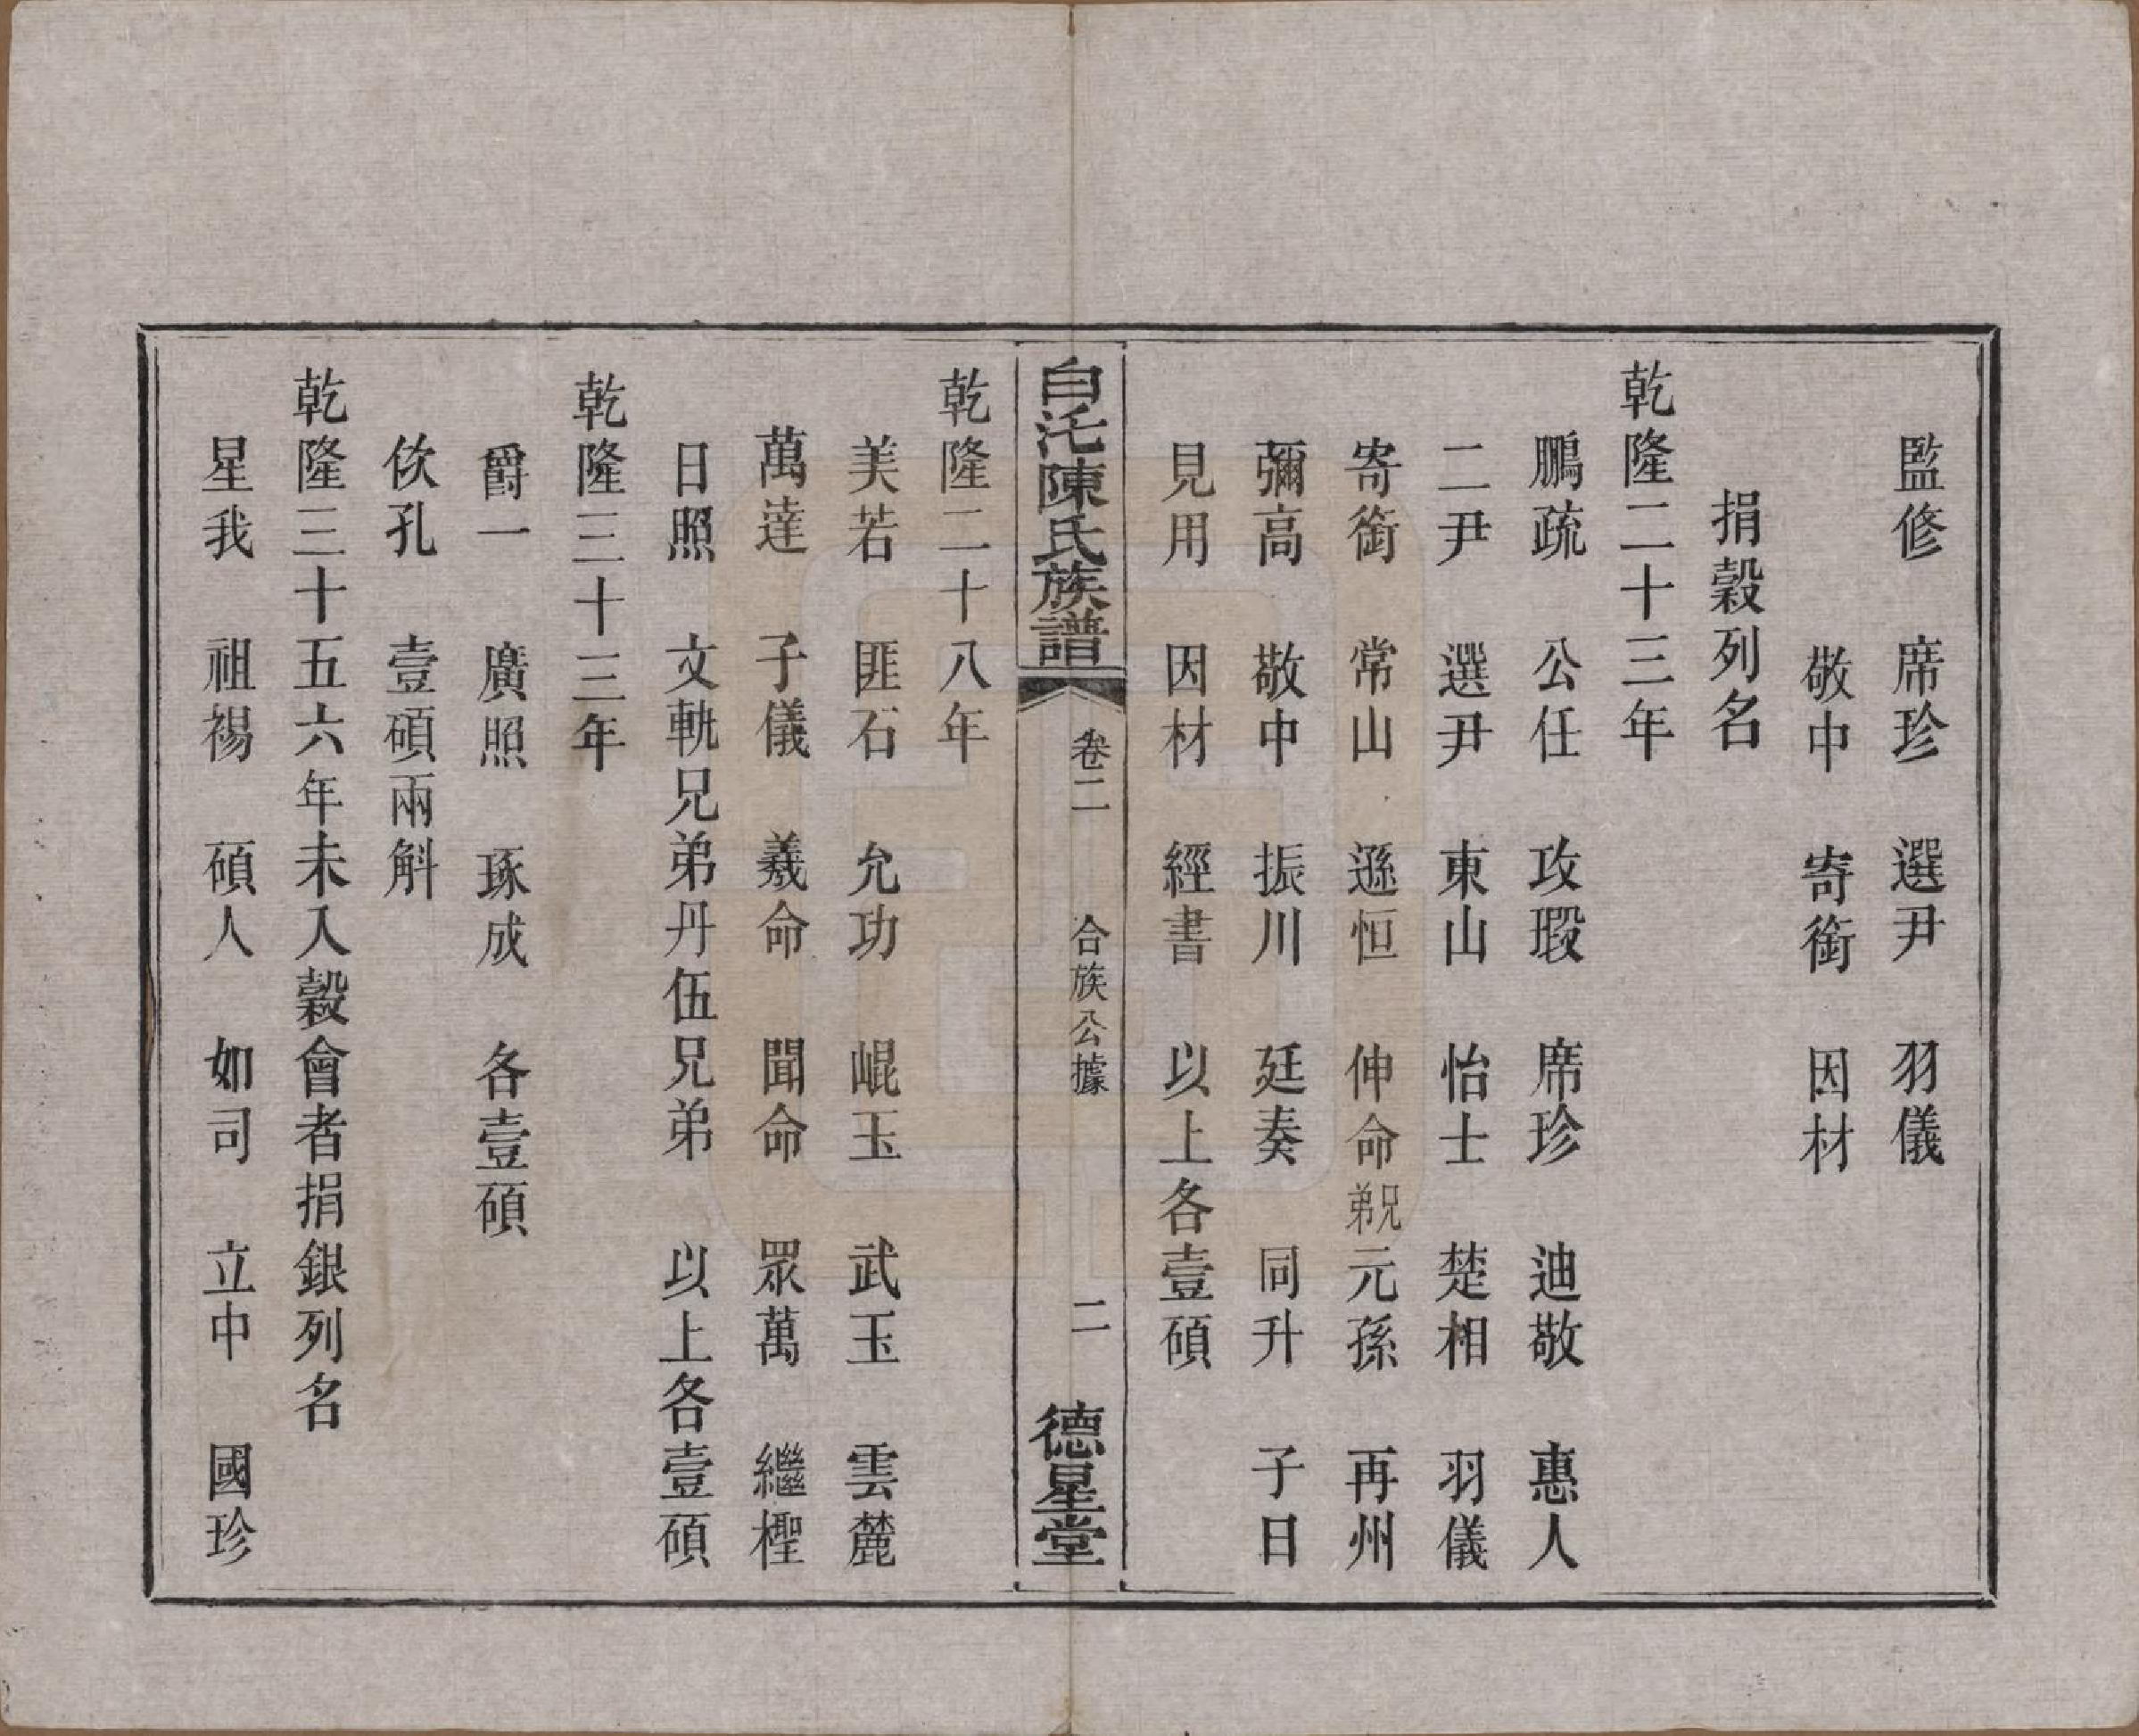 監修　席珍　選尹　羽儀
敬中　寄銜　因材
捐穀列名
乾隆二十三年
鵬疏　公任　攻瑕　席珍　迪敬　惠人
二尹　選尹　東山　怡士　楚相　羽儀
寄銜　常山　遜恒　伸命兄弟　元孫　再州
彌高　敬中　振川　廷奏　同升　子日
見用　因材　經書　以上各壹碩
白沱陳氏族譜　卷二　合族公據　二　德星堂
乾隆二十八年
美若　匪石　允功　崐玉　武玉　雲麓
萬達　子儀　羲命　聞命　眾萬　繼檉
日照　文軌兄弟丹伍兄弟　以上各壹碩
乾隆三十三年
爵一　廣照　琢成　各壹碩
佽孔　壹碩兩斛
乾隆三十五六年未入穀會者捐銀列名
星我　祖禓　碩人　如司　立中　國珍